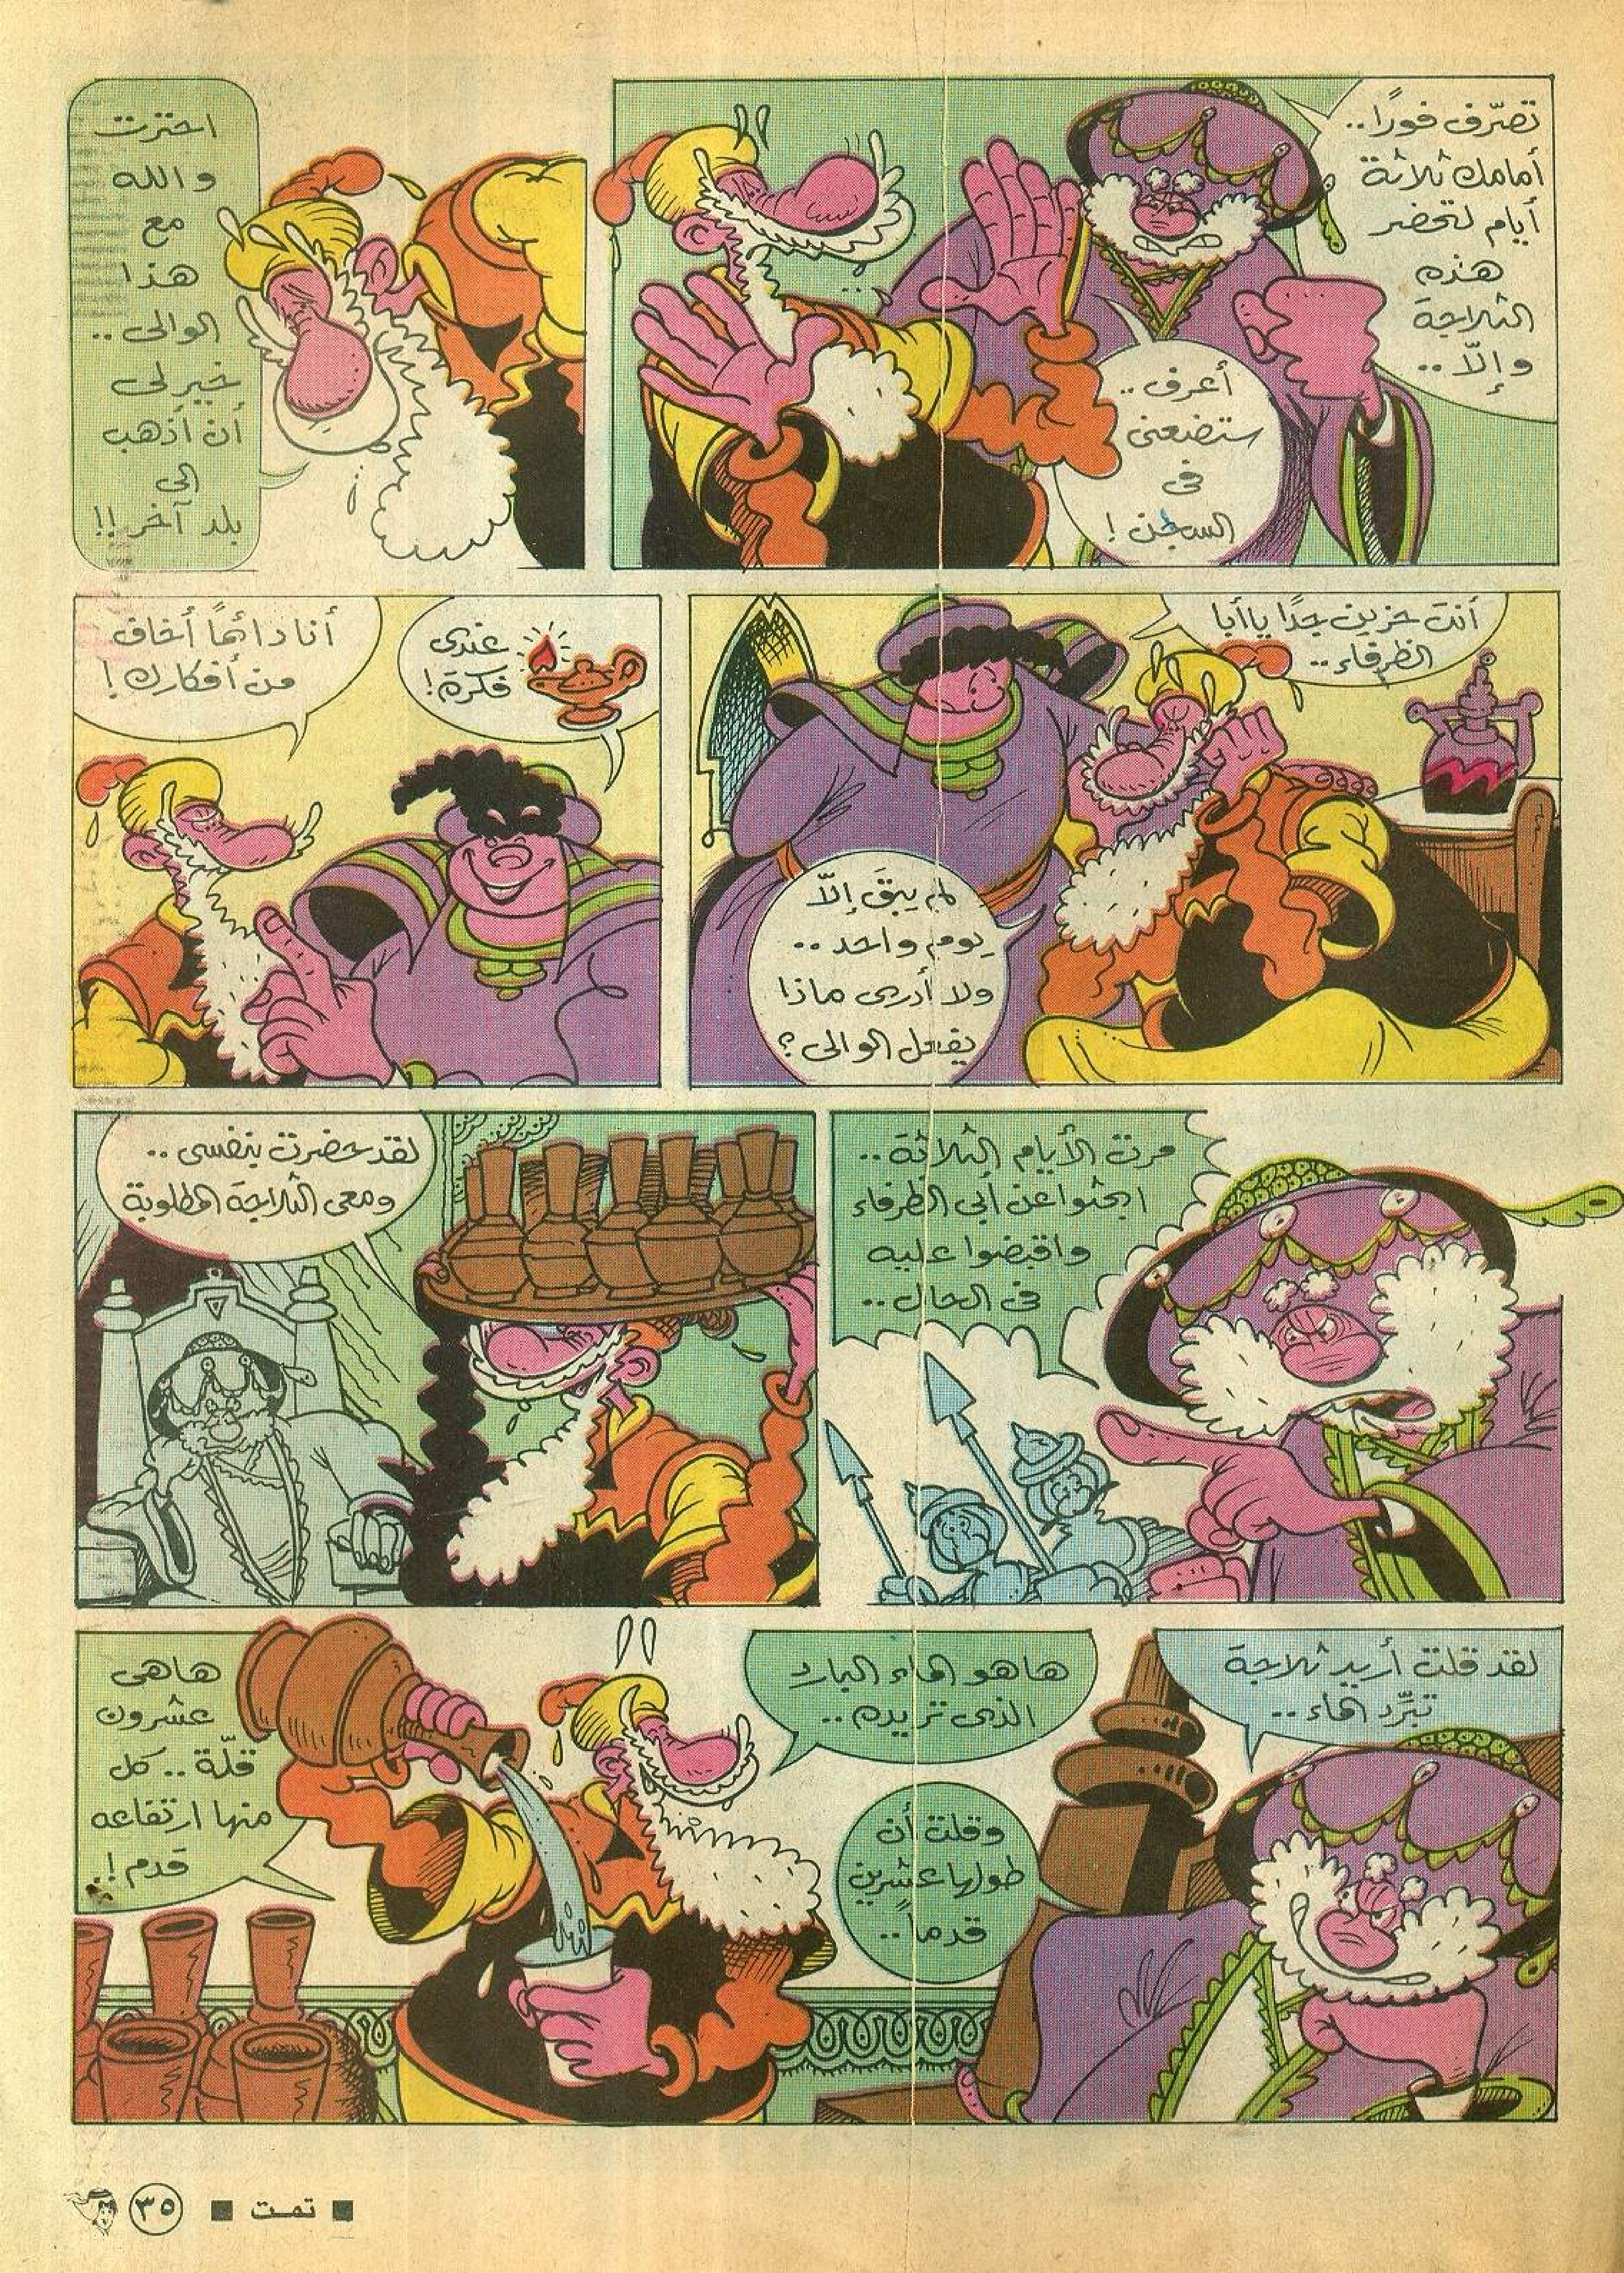 تصرّف فورًا..
أمامك ثلاثة
أيام لتحضر
هذه
الثلاجة
وإلّا..
أعرف..
ستضعنى
فى
السجن!
احترت
والله
مع
هذا
الوالى..
خير لى
أن أذهب
إلى
بلد آخر!!
أنت حزين جدًا يا أبا
الظرفاء..
لم يبقَ إلّا
يوم واحد..
ولا أدرى ماذا
يفعل الوالى؟
عندى
فكرة!
أنا دائمًا أخاف
من أفكارك!
مرت الأيام الثلاثة..
ابحثوا عن أبى الظرفاء
واقبضوا عليه
فى الحال..
لقد حضرت بنفسى..
ومعى الثلاجة المطلوبة
لقد قلت أريد ثلاجة
تبرّد الماء..
ها هو الماء البارد
الذى تريده..
وقلت أن
طولها عشرين
قدماً..
هاهى
عشرون
قلّة.. كل
منها ارتفاعه
قدم!.
■ تمت ■ ٣٥